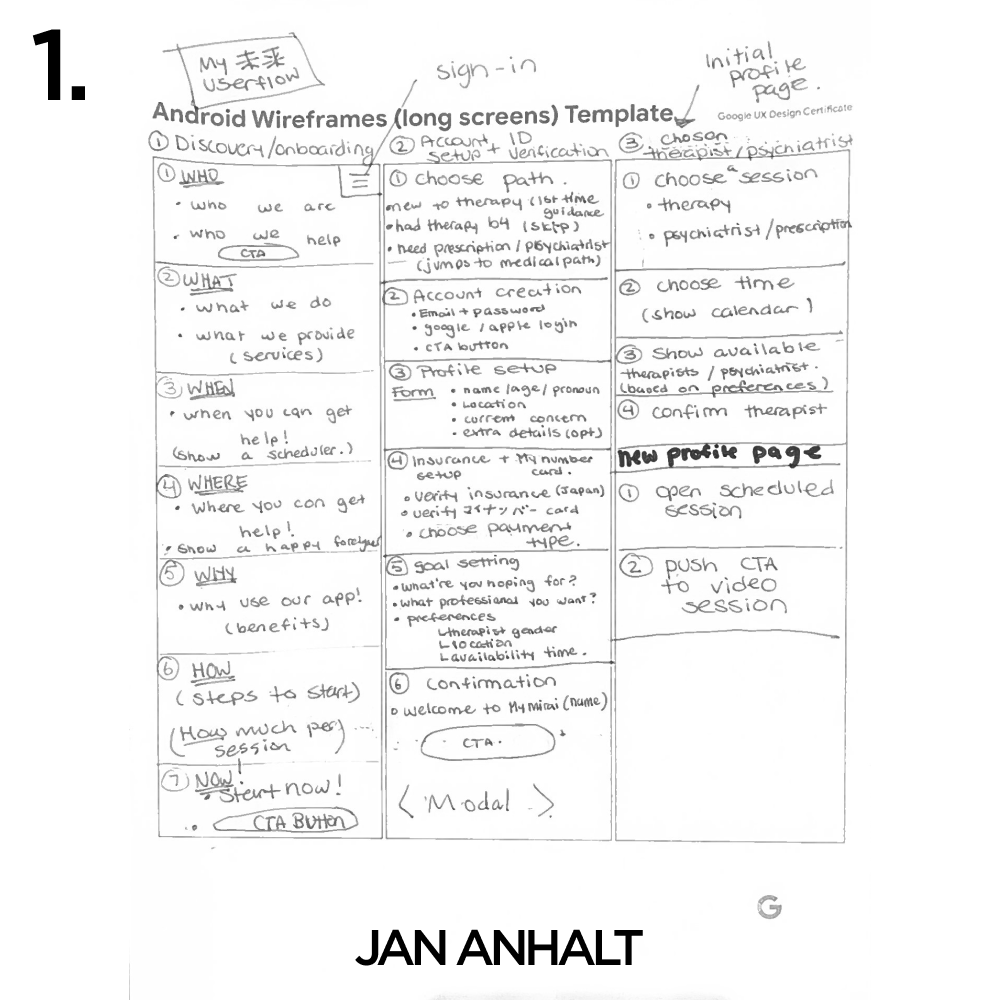 1.
My 未来
userflow
sign-in
Initial
profile
page.
Android Wireframes (long screens) Template
Google UX Design Certificate
① Discovery/onboarding
① WHO
• who we are
• who we help
CTA
② WHAT
• what we do
• what we provide
(services)
③ WHEN
• when you can get
help!
(show a scheduler.)
④ WHERE
• Where you can get
help!
• show a happy foreigner
⑤ WHY
• why use our app!
(benefits)
⑥ HOW
(steps to start)
(How much per
session)
⑦ NOW!
• Start now!
CTA Button
② Account setup + ID verification
① choose path.
• new to therapy (1st time
guidance
• had therapy b4 (skip)
• need prescription / psychiatrist
(jumps to medical path)
② Account creation
• Email + password
• google / apple login
• CTA button
③ Profile setup
Form • name/age/pronoun
• Location
• current concern
• extra details (opt)
④ Insurance + My number
setup card.
• verify insurance (Japan)
• verify マイナンバー card
• choose payment
type.
⑤ goal setting
• what're you hoping for?
• what professional you want?
• preferences
↳therapist gender
↳location
↳availability time.
⑥ confirmation
• welcome to My mirai (name)
CTA.
< Modal >
③ chosen
therapist/psychiatrist
① choose a session
• therapy
• psychiatrist/prescription
② choose time
(show calendar)
③ Show available
therapists / psychiatrist.
(based on preferences)
④ confirm therapist
new profile page
① open scheduled
session
② push CTA
to video
session
G
JAN ANHALT